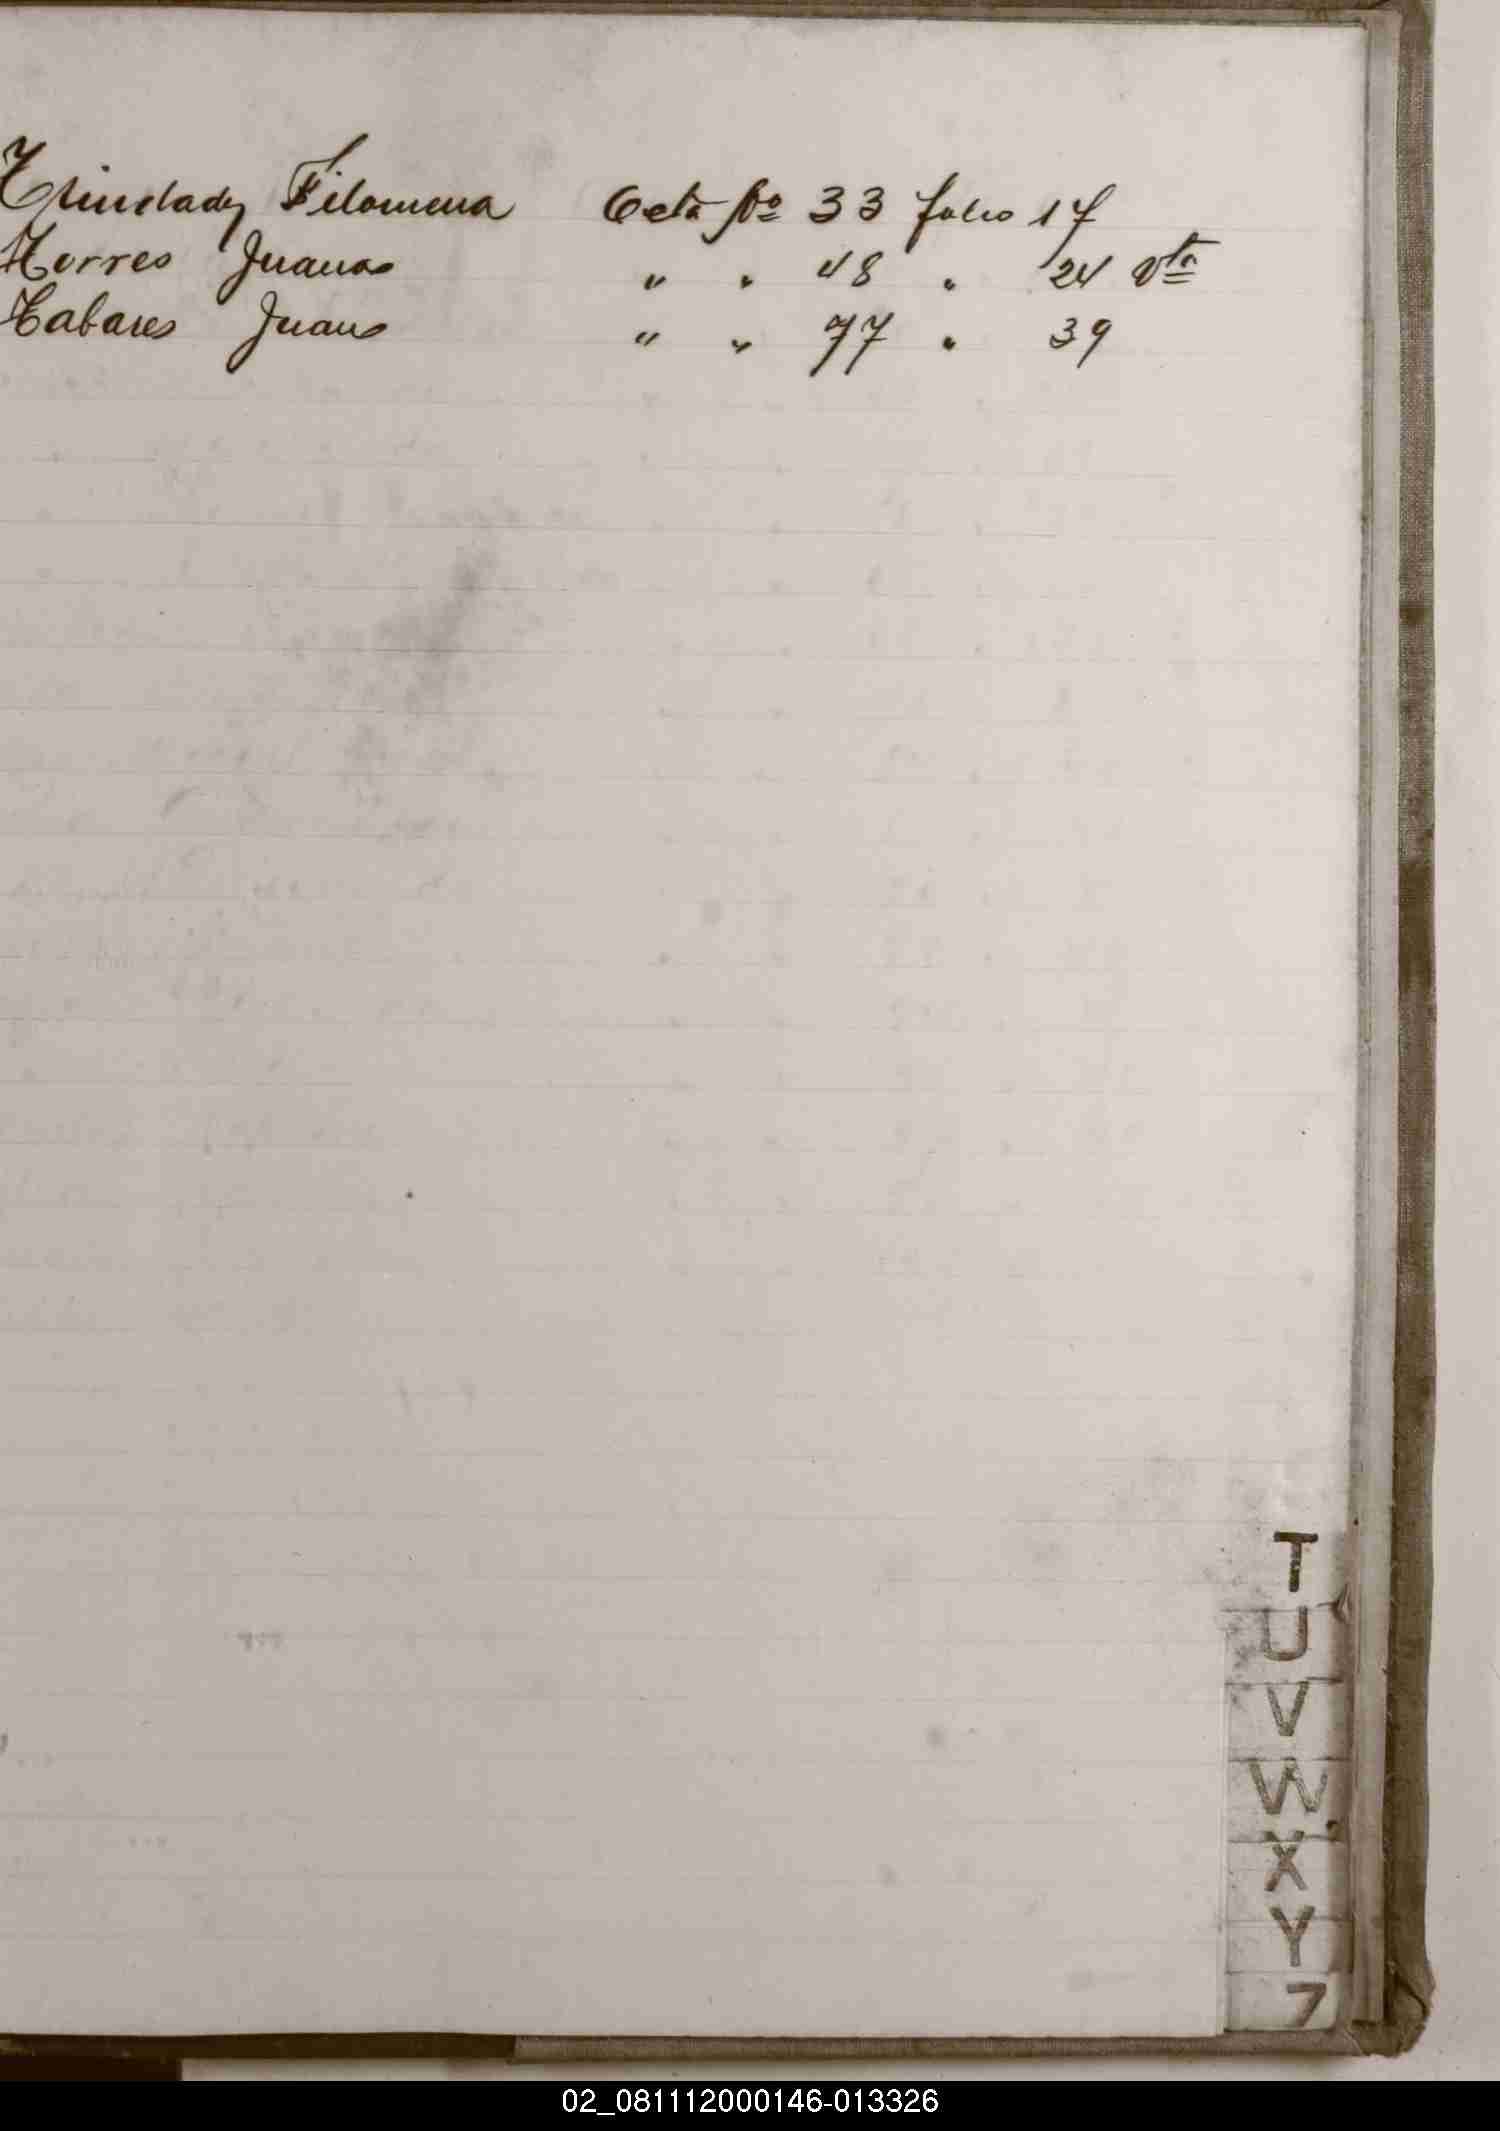 Trinidady Filomena Acta No 33 folio 17
Torres Juana " " 48 " 24 vta
Tabares Juana " " 77 " 39
T
U
V
W
X
Y
Z
02_081112000146-013326